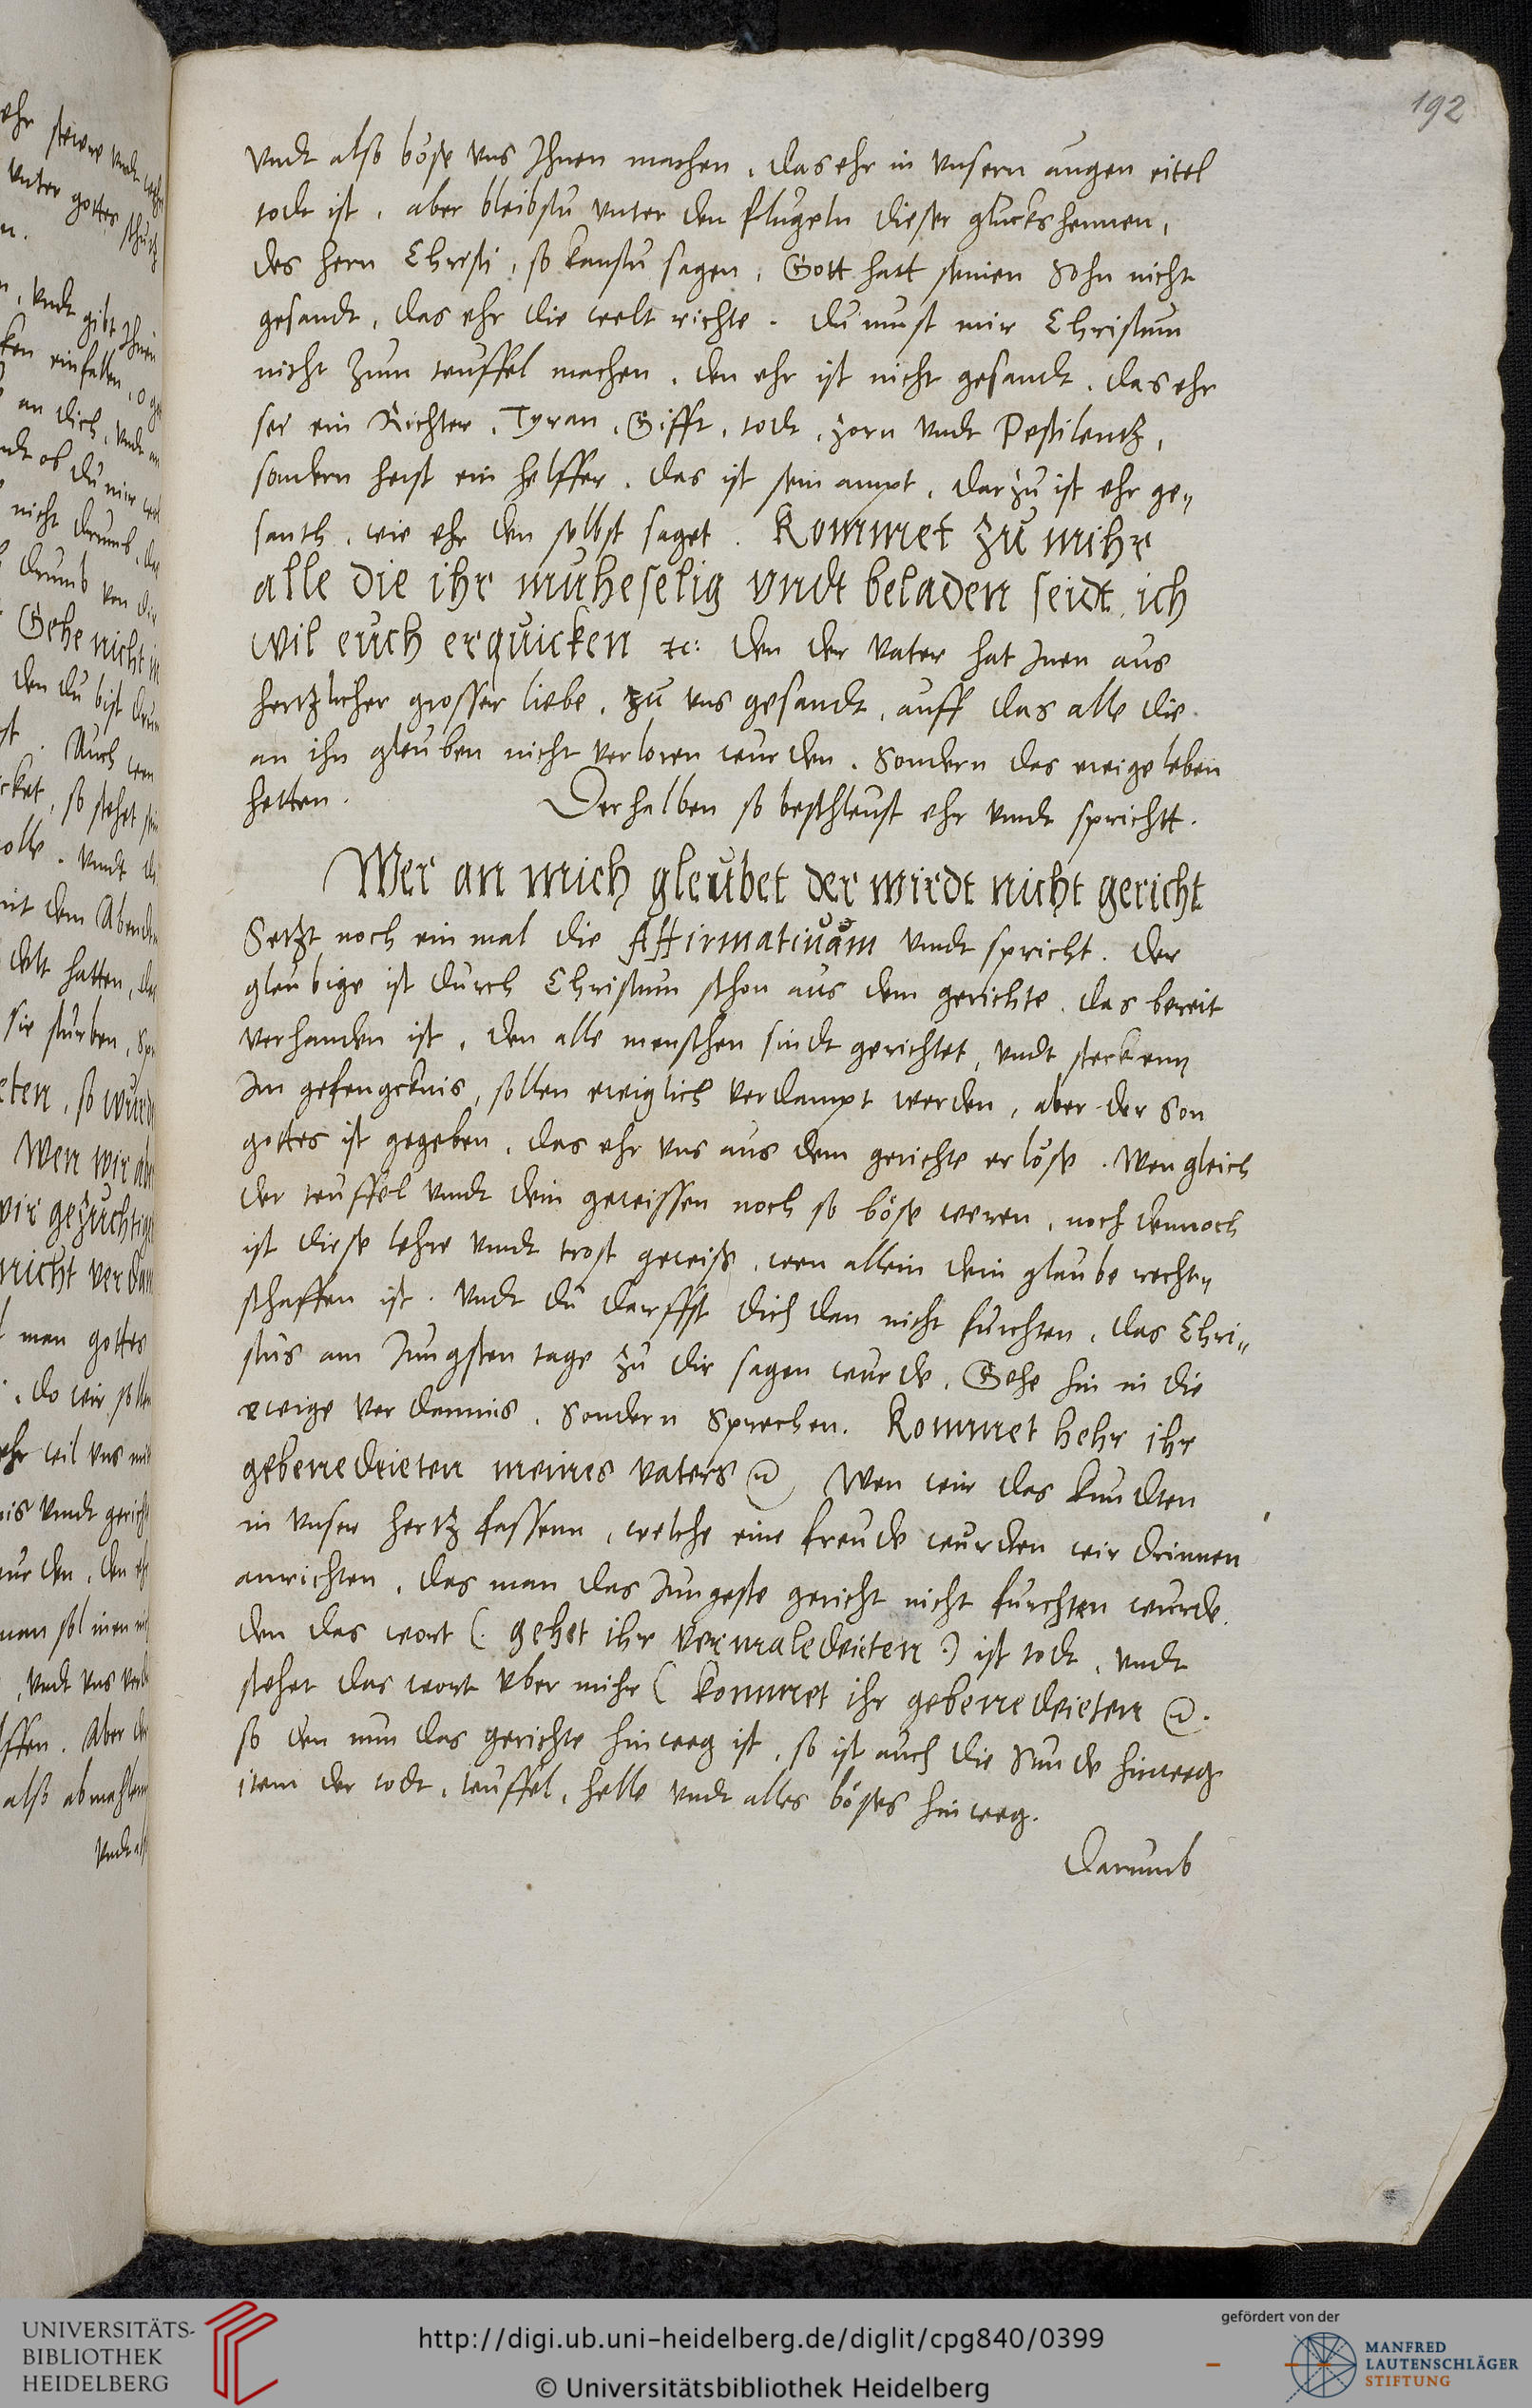 192
vndt also böse vns Ihnen machen, das ehr in vnsern augen eitel
todt ist, aber bleibstu vnter den flugeln dieser gluckshennen,
des hern Christi, so kanstu sagen, Gott hatt seinen Sohn nicht
gesandt, das ehr die welt richte. du must mir Christum
nicht zum teuffel machen, den ehr ist nicht gesandt, das ehr
sei ein Richter, Tyran, Gifft, todt, zorn vndt Pestilentz,
sondern heist ein helffer, das ist sein ampt, darzu ist ehr ge„
santh, wie ehr den selbst saget. Kommet zu mihr
alle die ihr muheselig vndt beladen seidt, ich
wil euch erquicken etc: den der vater hat Inen aus
hertzlicher grosser liebe, zu vns gesandt, auff das alle die
an ihn gleuben nicht verloren wurden, Sondern das ewige leben
hetten. Derhalben so beschleust ehr vndt sprichtt.
Wer an mich gleubet der wirdt nicht gericht
Setzt noch ein mal die Affirmativam vndt spricht. der
gleubige ist durch Christum schon aus dem gerichte, das bereit
verhanden ist, den alle menschen sindt gerichtet, vndt steckenn
Im gefengcknis, sollen ewiglich verdampt werden, aber der Son
gottes ist gegeben, das ehr vns aus dem gerichte erlöse. Wen gleich
der teuffel vndt dein geweissen noch so böse weren, noch dennoch
ist diese lehre vndt trost geweis, wen allein dein glaube recht„
schaffen ist. vndt du darffst dich dan nicht furchten, das Chri„
stus am Jungsten tage zu dir sagen wurde, Gehe hin in die
ewige verdamnis, Sondern Sprechen. Kommet hehr ihr
gebenedeieten meines vaters etc. Wen wir das kundten
in vnser hertz fassenn, welche eine freude wurden wir drinnen
anrichten, das man das Jungeste gericht nicht furchten wurde.
den das wort (. gehet ihr vermaledeieten .) ist todt, vndt
stehet das wort vber mihr ( kommet ihr gebenedeieten etc.
so den nun das gerichte hinweg ist, so ist auch die Sunde hinweg
item der todt, teuffel, helle vndt alles böses hinweg.
Darumb
UNIVERSITÄTS-
BIBLIOTHEK
HEIDELBERG
http://digi.ub.uni-heidelberg.de/diglit/cpg840/0399
© Universitätsbibliothek Heidelberg
gefördert von der
MANFRED
LAUTENSCHLÄGER
STIFTUNG